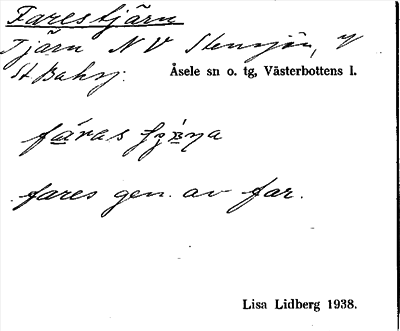 Farestjärn
Tjärn NV Stensjön,
St Backsj. Åsele sn o. tg, Västerbottens l.
fares gen. av far.
Lisa Lidberg 1938.